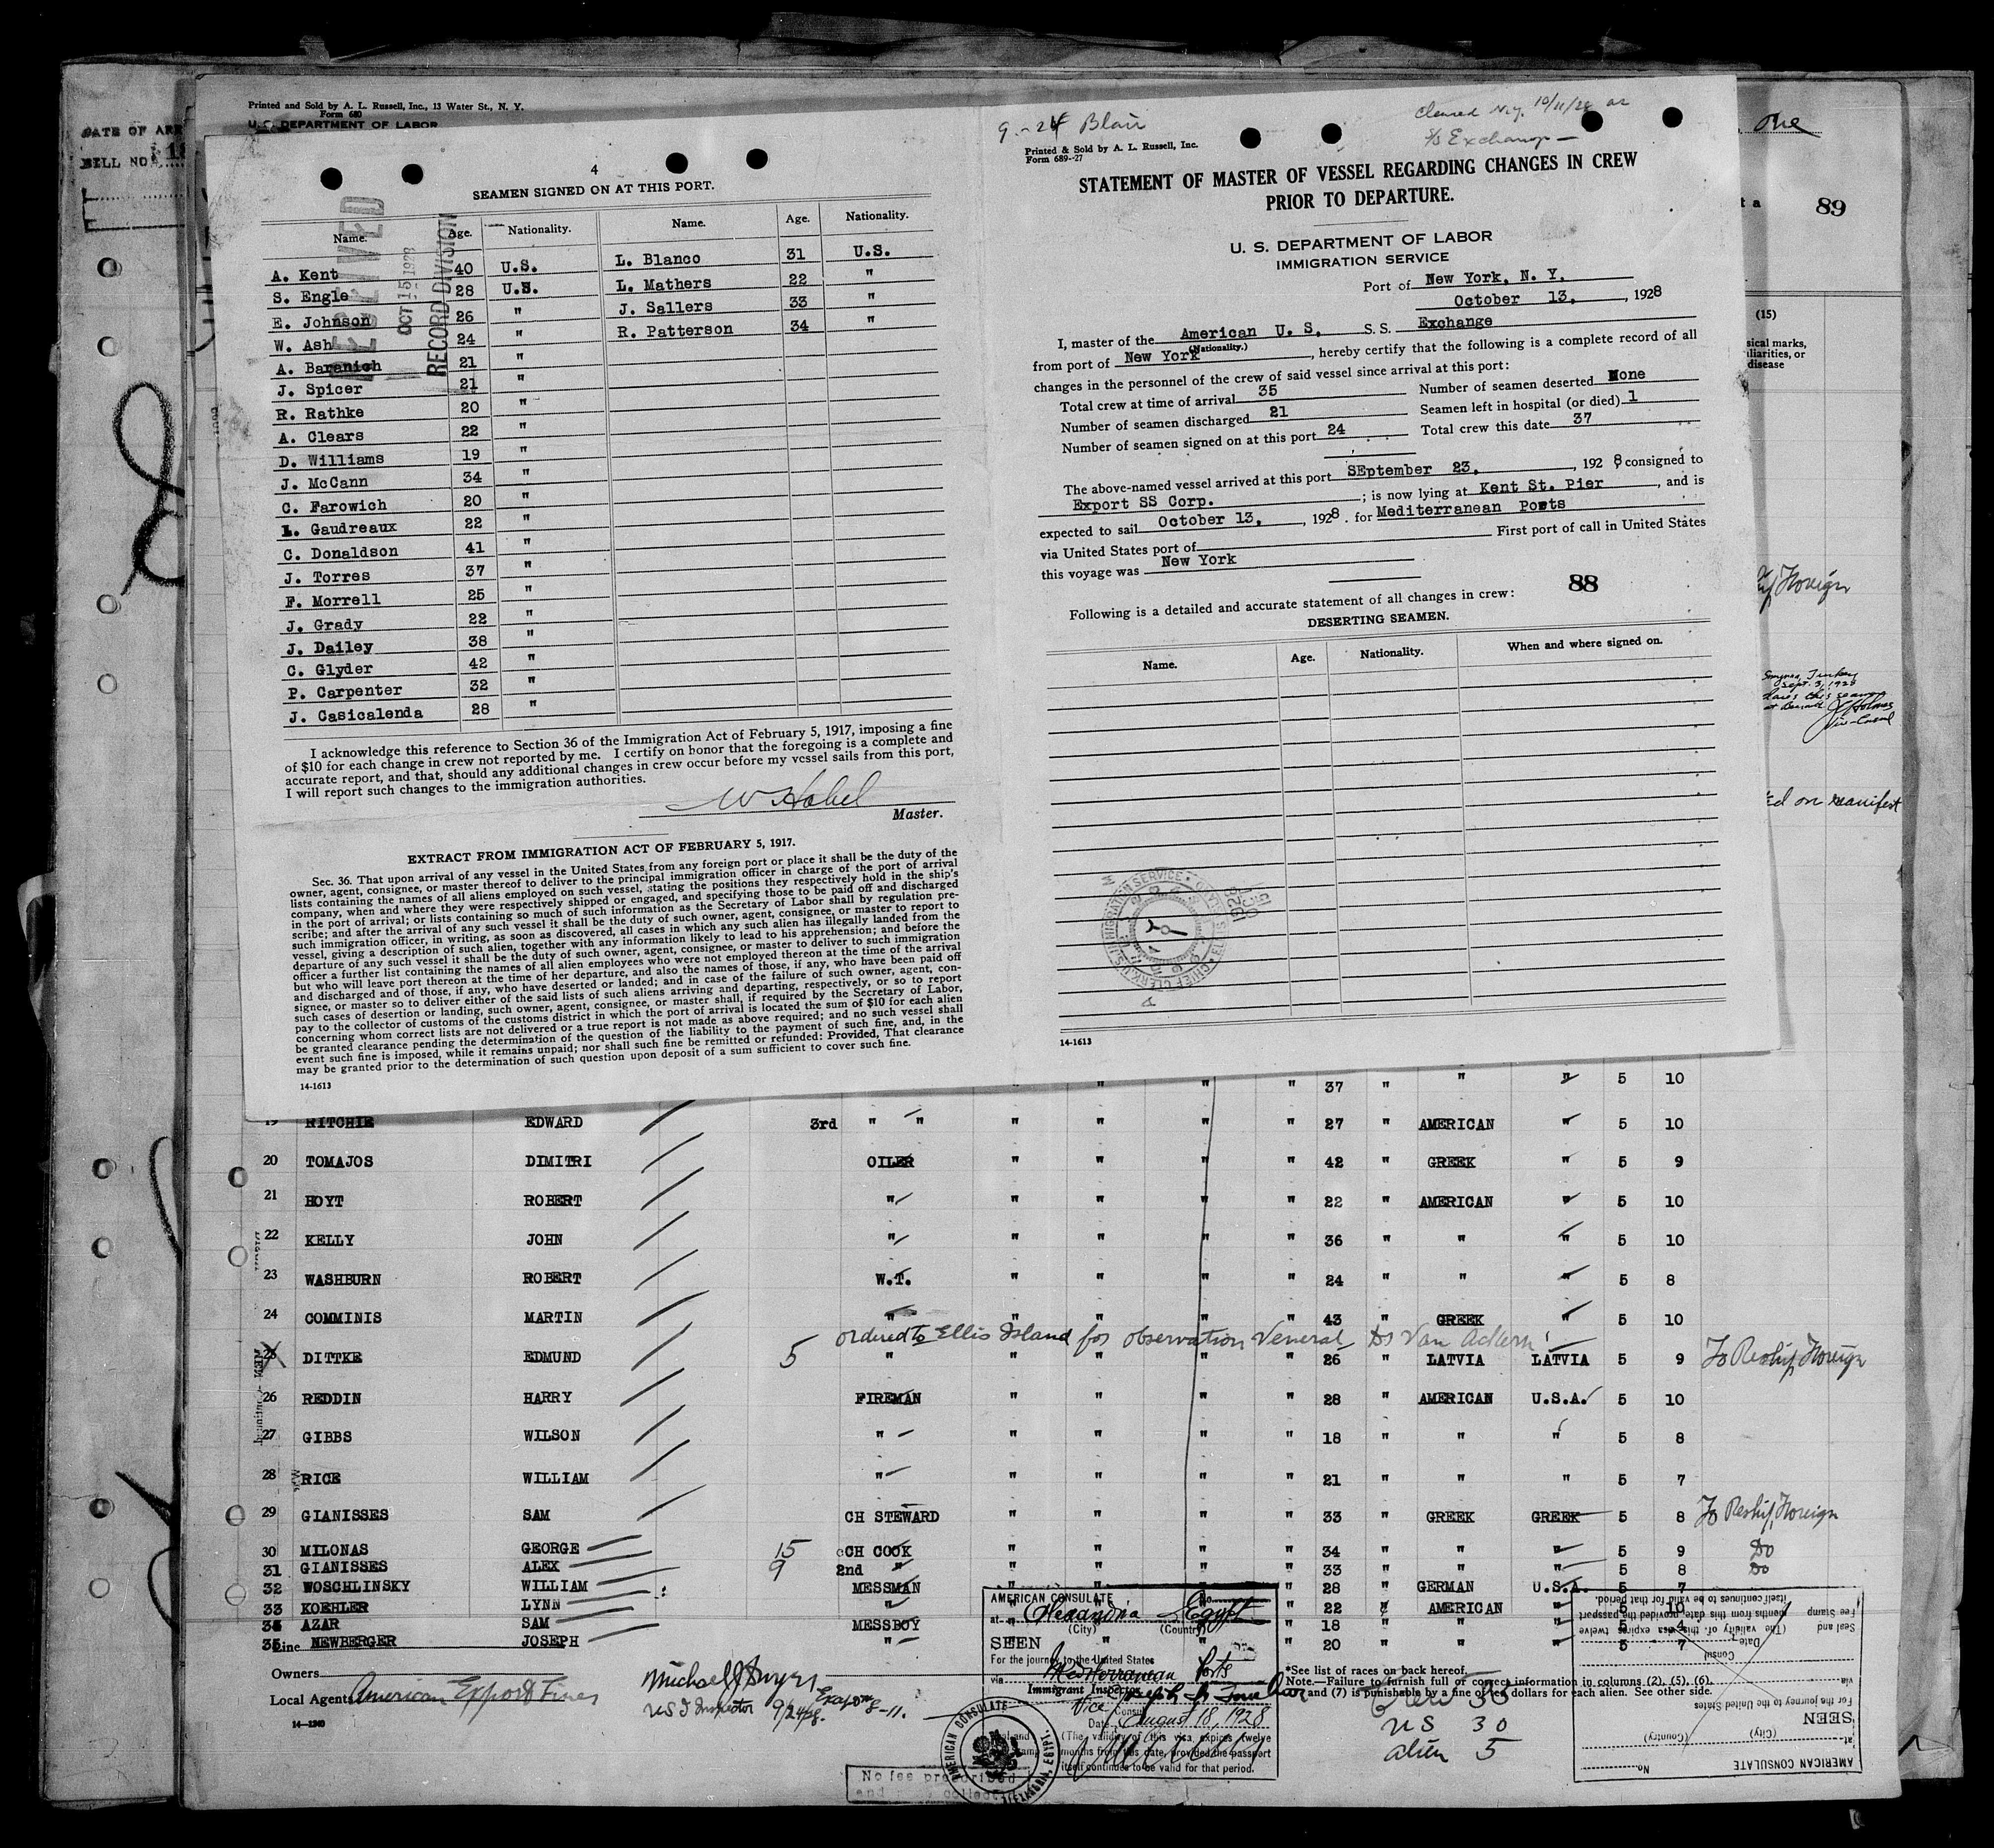 Printed and Sold by A. L. Russell, Inc., 13 Water St., N. Y.
Form 680
U. S. DEPARTMENT OF LABOR
DATE OF
BILL NO.
89
(15)
4
SEAMEN SIGNED ON AT THIS PORT.
Name. Age. Nationality. Name. Age. Nationality.
A. Kent 40 U.S. L. Blanco 31 U.S.
S. Engle 28 U.S. L. Mathers 22 "
E. Johnson 26 " J. Sallers 33 "
W. Ash 24 " R. Patterson 34 "
A. Baranich 21 "
J. Spicer 21 "
R. Rathke 20 "
A. Clears 22 "
D. Williams 19 "
J. McCann 34 "
C. Farowich 20 "
L. Gaudreaux 22 "
C. Donaldson 41 "
J. Torres 37 "
F. Morrell 25 "
J. Grady 22 "
J. Dailey 38 "
C. Glyder 42 "
P. Carpenter 32 "
J. Casicalenda 28 "
RECEIVED
OCT 15 1928
RECORD DIVISION
I acknowledge this reference to Section 36 of the Immigration Act of February 5, 1917, imposing a fine
of $10 for each change in crew not reported by me. I certify on honor that the foregoing is a complete and
accurate report, and that, should any additional changes in crew occur before my vessel sails from this port,
I will report such changes to the immigration authorities.
Master.
EXTRACT FROM IMMIGRATION ACT OF FEBRUARY 5, 1917.
Sec. 36. That upon arrival of any vessel in the United States from any foreign port or place it shall be the duty of the
owner, agent, consignee, or master thereof to deliver to the principal immigration officer in charge of the port of arrival
lists containing the names of all aliens employed on such vessel, stating the positions they respectively hold in the ship's
company, when and where they were respectively shipped or engaged, and specifying those to be paid off and discharged
in the port of arrival; or lists containing so much of such information as the Secretary of Labor shall by regulation pre-
scribe; and after the arrival of any such vessel it shall be the duty of such owner, agent, consignee, or master to report to
such immigration officer, in writing, as soon as discovered, all cases in which any such alien has illegally landed from the
vessel, giving a description of such alien, together with any information likely to lead to his apprehension; and before the
departure of any such vessel it shall be the duty of such owner, agent, consignee, or master to deliver to such immigration
officer a further list containing the names of all alien employees who were not employed thereon at the time of the arrival
but who will leave port thereon at the time of her departure, and also the names of those, if any, who have been paid off
and discharged and of those, if any, who have deserted or landed; and in case of the failure of such owner, agent, con-
signee, or master so to deliver either of the said lists of such aliens arriving and departing, respectively, or so to report
such cases of desertion or landing, such owner, agent, consignee, or master shall, if required by the Secretary of Labor,
pay to the collector of customs of the customs district in which the port of arrival is located the sum of $10 for each alien
concerning whom correct lists are not delivered or a true report is not made as above required; and no such vessel shall
be granted clearance pending the determination of the question of the liability to the payment of such fine, and, in the
event such fine is imposed, while it remains unpaid; nor shall such fine be remitted or refunded: Provided, That clearance
may be granted prior to the determination of such question upon deposit of a sum sufficient to cover such fine.
14-1613
9-24 Blair
Cleared N.Y. 10/11/28 as
S/S Exchange
Printed & Sold by A. L. Russell, Inc.
Form 689--27
STATEMENT OF MASTER OF VESSEL REGARDING CHANGES IN CREW
PRIOR TO DEPARTURE.
U. S. DEPARTMENT OF LABOR
IMMIGRATION SERVICE
Port of New York, N. Y.
October 13, , 1928
I, master of the American U. S. S. S. Exchange
(Nationality.)
from port of New York , hereby certify that the following is a complete record of all
changes in the personnel of the crew of said vessel since arrival at this port:
Total crew at time of arrival 35 Number of seamen deserted None
Number of seamen discharged 21 Seamen left in hospital (or died) 1
Number of seamen signed on at this port 24 Total crew this date 37
The above-named vessel arrived at this port SEptember 23, , 1928 consigned to
Export SS Corp. ; is now lying at Kent St. Pier , and is
expected to sail October 13, , 1928. for Mediterranean Ports
via United States port of First port of call in United States
this voyage was New York
88
Following is a detailed and accurate statement of all changes in crew:
DESERTING SEAMEN.
Name. Age. Nationality. When and where signed on.
14-1613
" " " " 37 " " " 5 10
19 RITCHIE EDWARD 3rd " " " " " " 27 " AMERICAN " 5 10
20 TOMAJOS DIMITRI OILER " " " " 42 " GREEK " 5 9
21 HOYT ROBERT " " " " " 22 " AMERICAN " 5 10
22 KELLY JOHN " " " " " 36 " " " 5 10
23 WASHBURN ROBERT W.T. " " " " 24 " " " 5 8
24 COMMINIS MARTIN " " " " " 43 " GREEK " 5 10
ordered to Ellis Island for observation Veneral Dr Van
25 DITTKE EDMUND 5 " " " " " 26 " LATVIA LATVIA 5 9 To Reship Foreign
26 REDDIN HARRY FIREMAN " " " " 28 " AMERICAN U.S.A. 5 10
27 GIBBS WILSON " " " " " 18 " " " 5 8
28 RICE WILLIAM " " " " " 21 " " " 5 7
29 GIANISSES SAM CH STEWARD " " " " 33 " GREEK GREEK 5 8 To Reship Foreign
30 MILONAS GEORGE 15 CH COOK " " " " 34 " " " 5 9 Do
31 GIANISSES ALEX 9 2nd " " " " " 33 " " " 5 8 Do
32 WOSCHLINSKY WILLIAM MESSMAN " " " " 28 " GERMAN U.S.A. 5 7
33 KOEHLER LYNN " " " 22 " AMERICAN " 5 10
34 AZAR SAM MESSBOY " " 18 " " " 5 4
35 NEWBERGER JOSEPH " " " 20 " " " 5 7
Owners
Local Agents American Export Lines
US I Inspector 9/24/28.
Immigrant Inspector
14-1240
AMERICAN CONSULATE No.
at Alexandria Egypt
(City) (Country)
SEEN
For the journey to the United States
via Mediterranean Ports
Vice Consul
Date August 18, 1928
(The validity of this visa expires twelve
months from this date, provided the passport
itself continues to be valid for that period.
AMERICAN CONSULATE
ALEXANDRIA, EGYPT.
No fee prescribed
*See list of races on back hereof.
Note.—Failure to furnish full or correct information in columns (2), (5), (6),
and (7) is punishable by a fine of ten dollars for each alien. See other side.
Crew 35
US 30
alien 5
AMERICAN CONSULATE No.
at
(City) (Country)
SEEN
For the journey to the United States
via
Consul
Date
Fee Stamp
Seal and
(The validity of this visa expires twelve
months from this date, provided the passport
itself continues to be valid for that period.
Foreign
Smyrna, Turkey
Sept. 5, 1928
on manifest